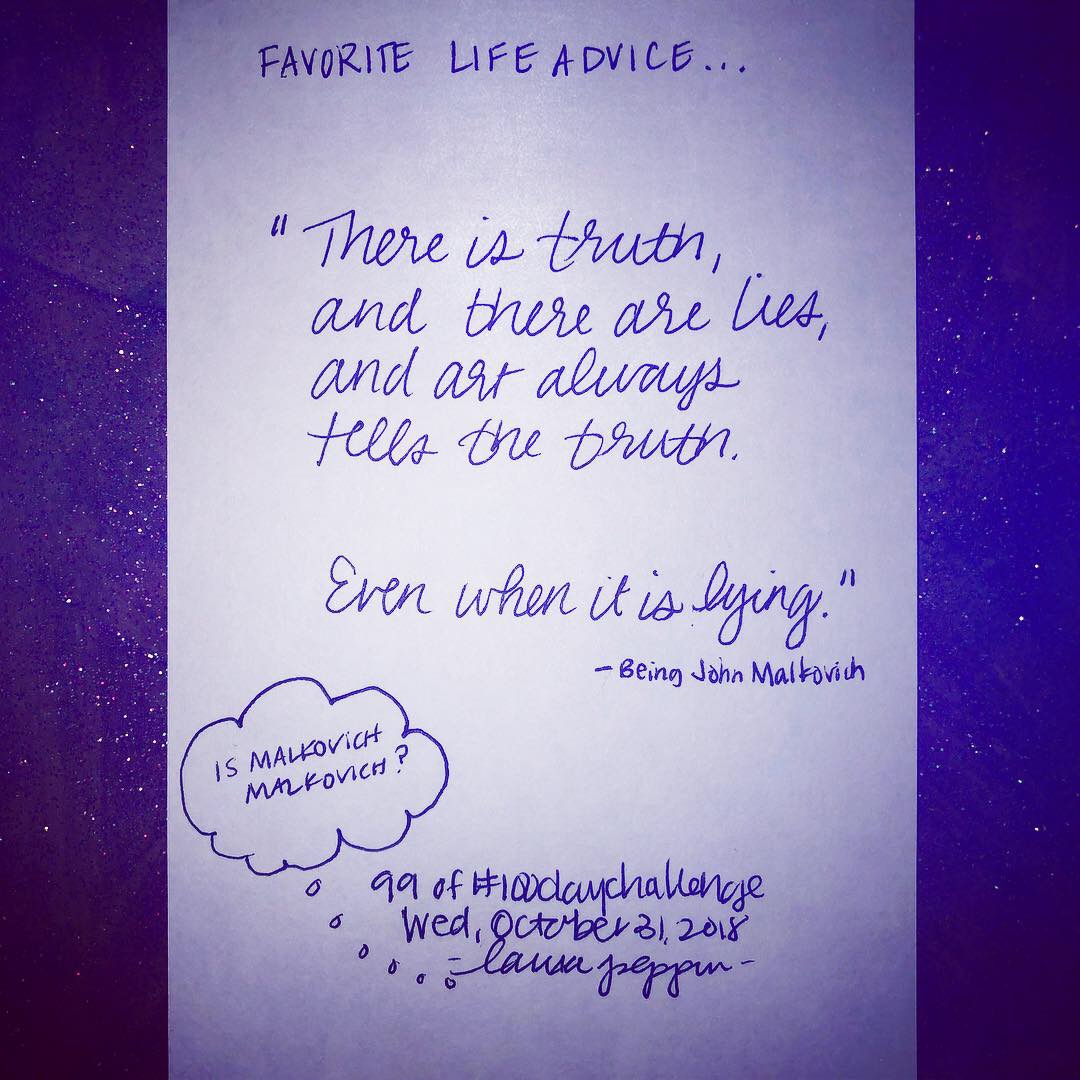 FAVORITE LIFE ADVICE...
"There is truth,
and there are lies,
and art always
tells the truth.
Even when it is lying."
- Being John Malkovich
IS MALKOVICH
MALKOVICH?
99 of #100daychallenge
Wed, October 31, 2018
- laura peppin -